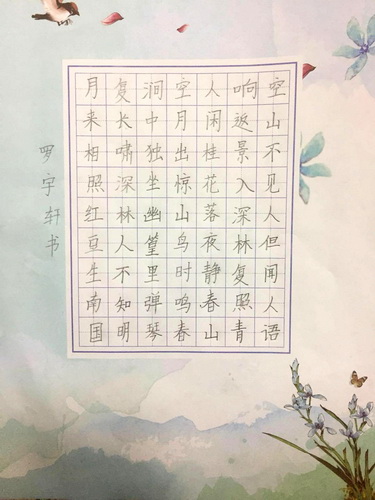 空山不见人但闻人语
响返景入深林复照青
人闲桂花落夜静春山
空月出惊山鸟时鸣春
涧中独坐幽篁里弹琴
复长啸深林人不知明
月来相照红豆生南国
罗宇轩书